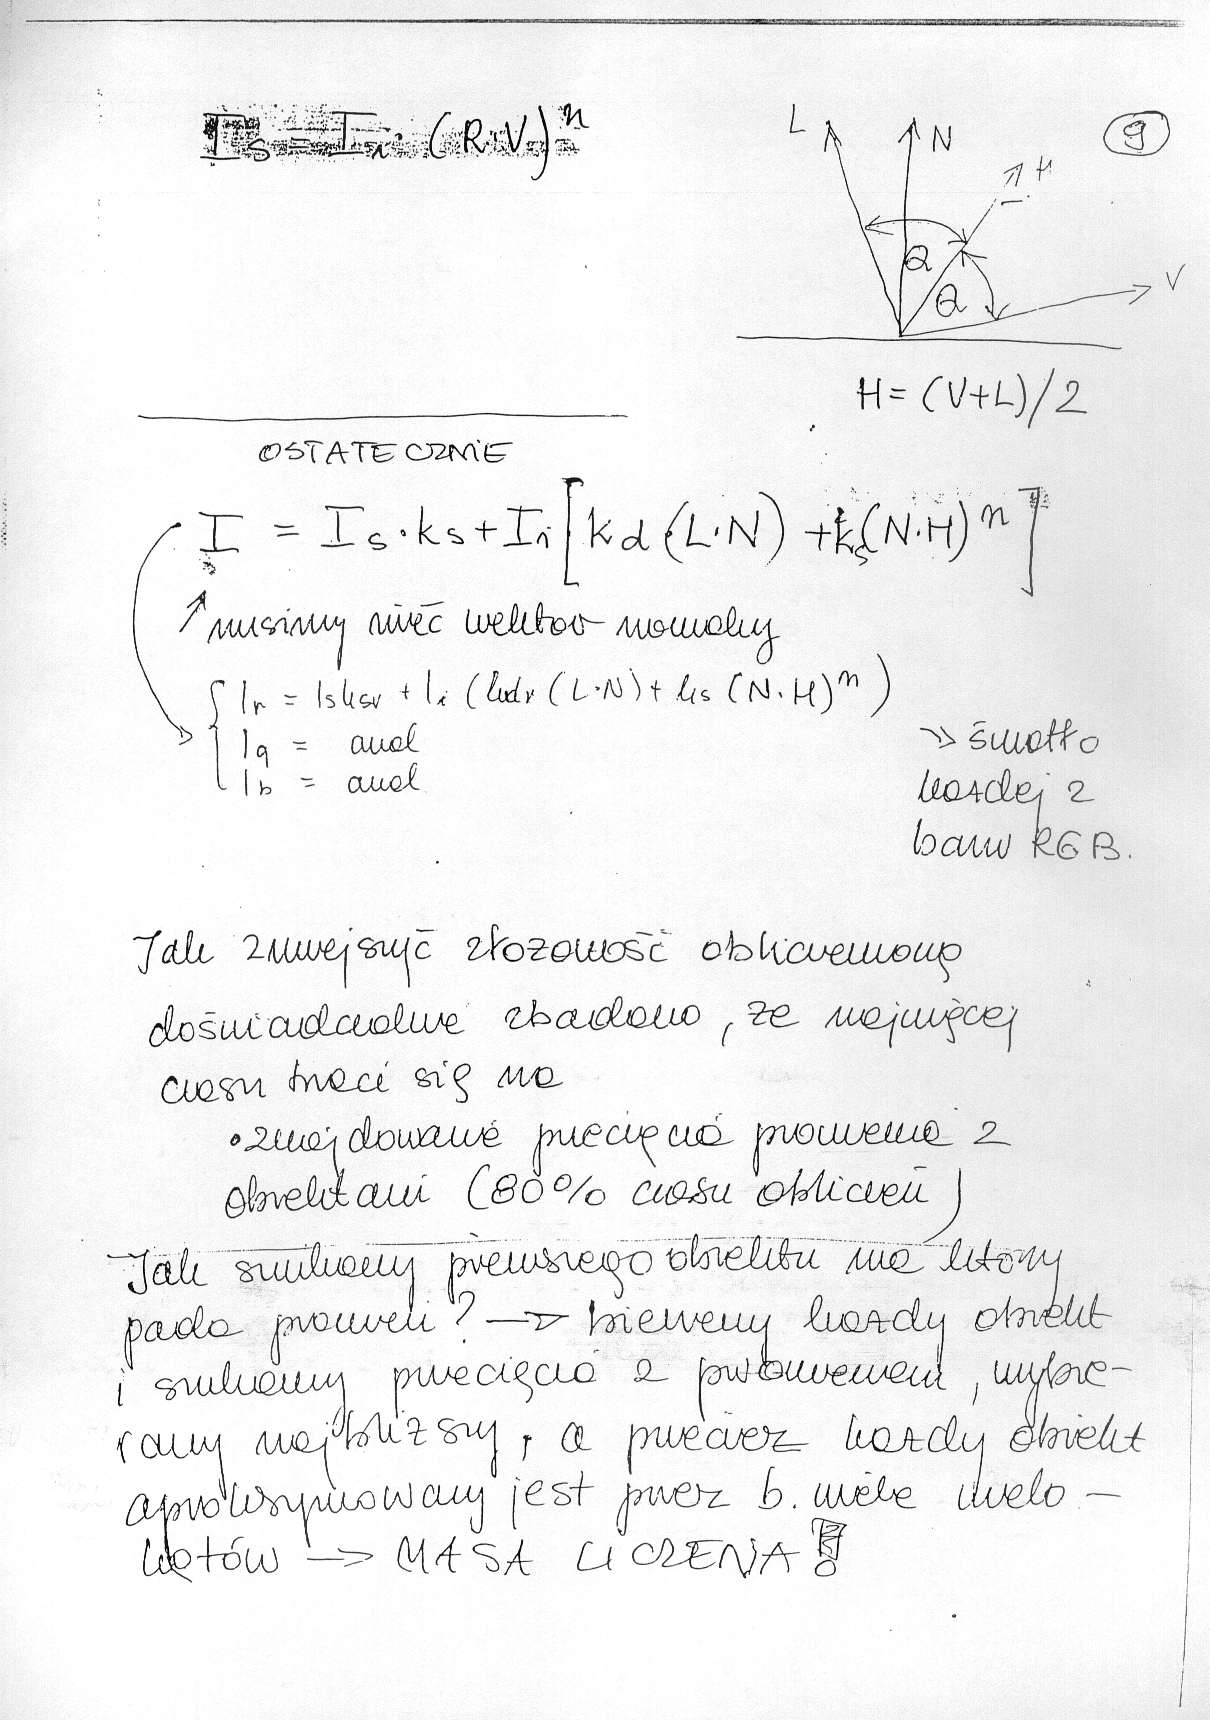 I_s = I_i (R·V)^n
9
L
N
H
V
Q
Q
H = (V+L)/2
OSTATECZNIE
I = I_s·k_s + I_i [k_d (L·N) + k_s (N·H)^n]
musimy mieć wektor normalny
I_r = I_s k_sr + I_i (k_dr (L·N) + k_s (N·H)^n)
I_g = anal
I_b = anal
→ światło
każdej z
barw RGB.
Jak zmniejszyć złożoność obliczeniową
doświadczalnie zbadano, że najwięcej
czasu traci się na
• znajdowanie przecięcia promienia z
obiektami (80% czasu obliczeń)
Jak szukamy pierwszego obiektu na który
pada promień? → bierzemy każdy obiekt
i szukamy przecięcia z promieniem, wybie-
ramy najbliższy, a przecież każdy obiekt
aproksymowany jest przez b. wiele wielo-
kątów → MASA LICZENIA!